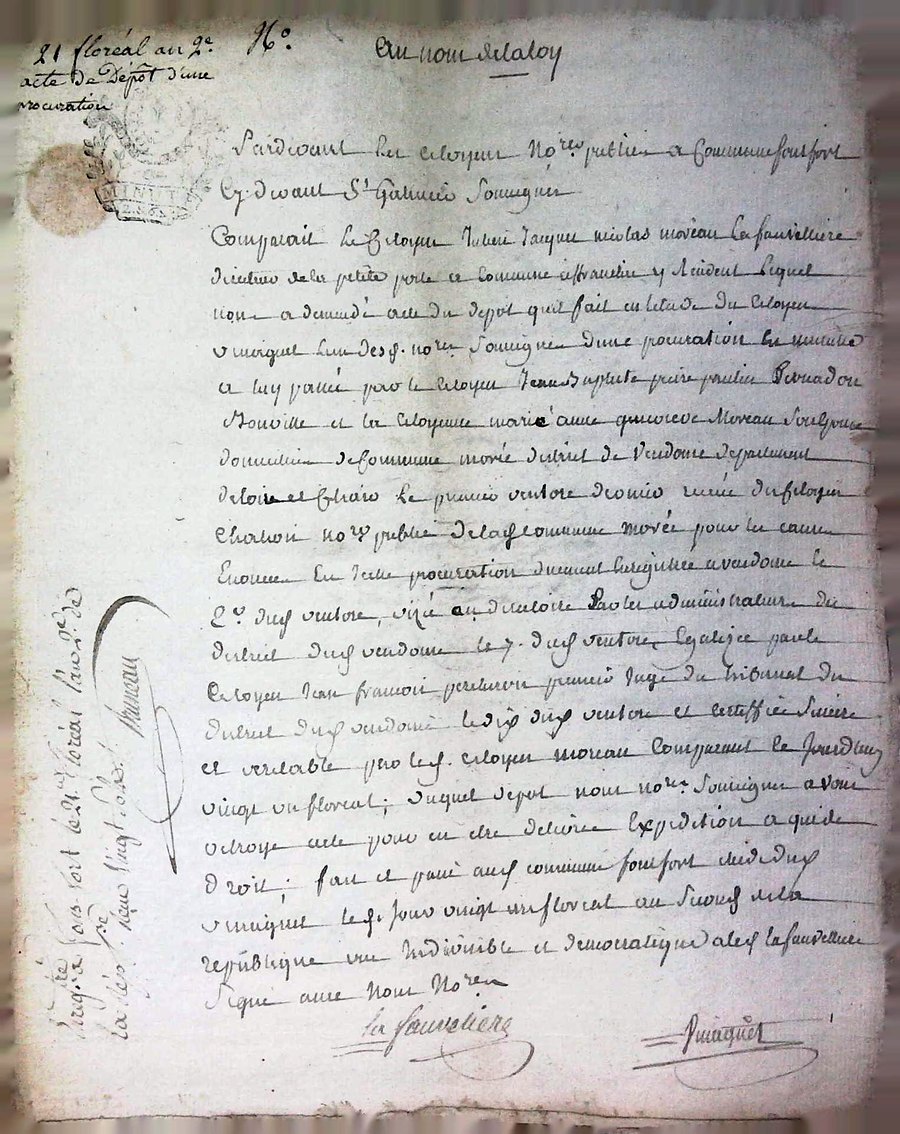 21 floréal an 2e
acte de Dépôt d'une
procuration
No.
Au nom de la loy
Pardevant les citoyens No.res publics a Commune fontfort
Cy. devant St Galmier Soussignés
Comparait Le Citoyen Julien Jacques nicolas moreau La fauvelliere
directeur de la petite poste a Commune y Résident Lequel
nous a demandé acte du depot quil fait en letude du Citoyen
vmaiguet Lun desd. no.res Soussignés dune procuration En minute
a luy passée par le Citoyen Jean Baptiste pierre
et la Citoyenne marie anne genevieve Moreau Son Epouse
domiciliés de Commune morée district de Vendome departement
de loir et Cher Le premier ventose dernier receüe du Citoyen
no.re public de lad. Commune Morée pour les causes
Enoncées En Icelle procuration duement Enregistrée a vendome le
2e. dud. ventose, visée au directoire Par les administrateurs du
district dud. vendome le 7. dud. ventose, Legalisée par le
Citoyen Jean francois premier Juge du tribunal du
district dud. vendome le dix dud. ventose et certiffiée Sincere
et veritable par led. Citoyen moreau Comparant Ce Jourdhuy
vingt un floreal; duquel depot nous no.res Soussignés avons
octroyé acte pour en etre delivrée Expedition a qui de
droit; fait et passé aud. commune fontfort etude dud.
vmaiguet led. Jour vingt un floreal an Second de la
republique une Indivisible et democratique a led. La fauvelliere
Signé avec Nous No.res
La fauveliere
vmaiguet
Enregtré à fons-fort le 21 floréal l'an 2e. de
la Rép. reçu vingt sols